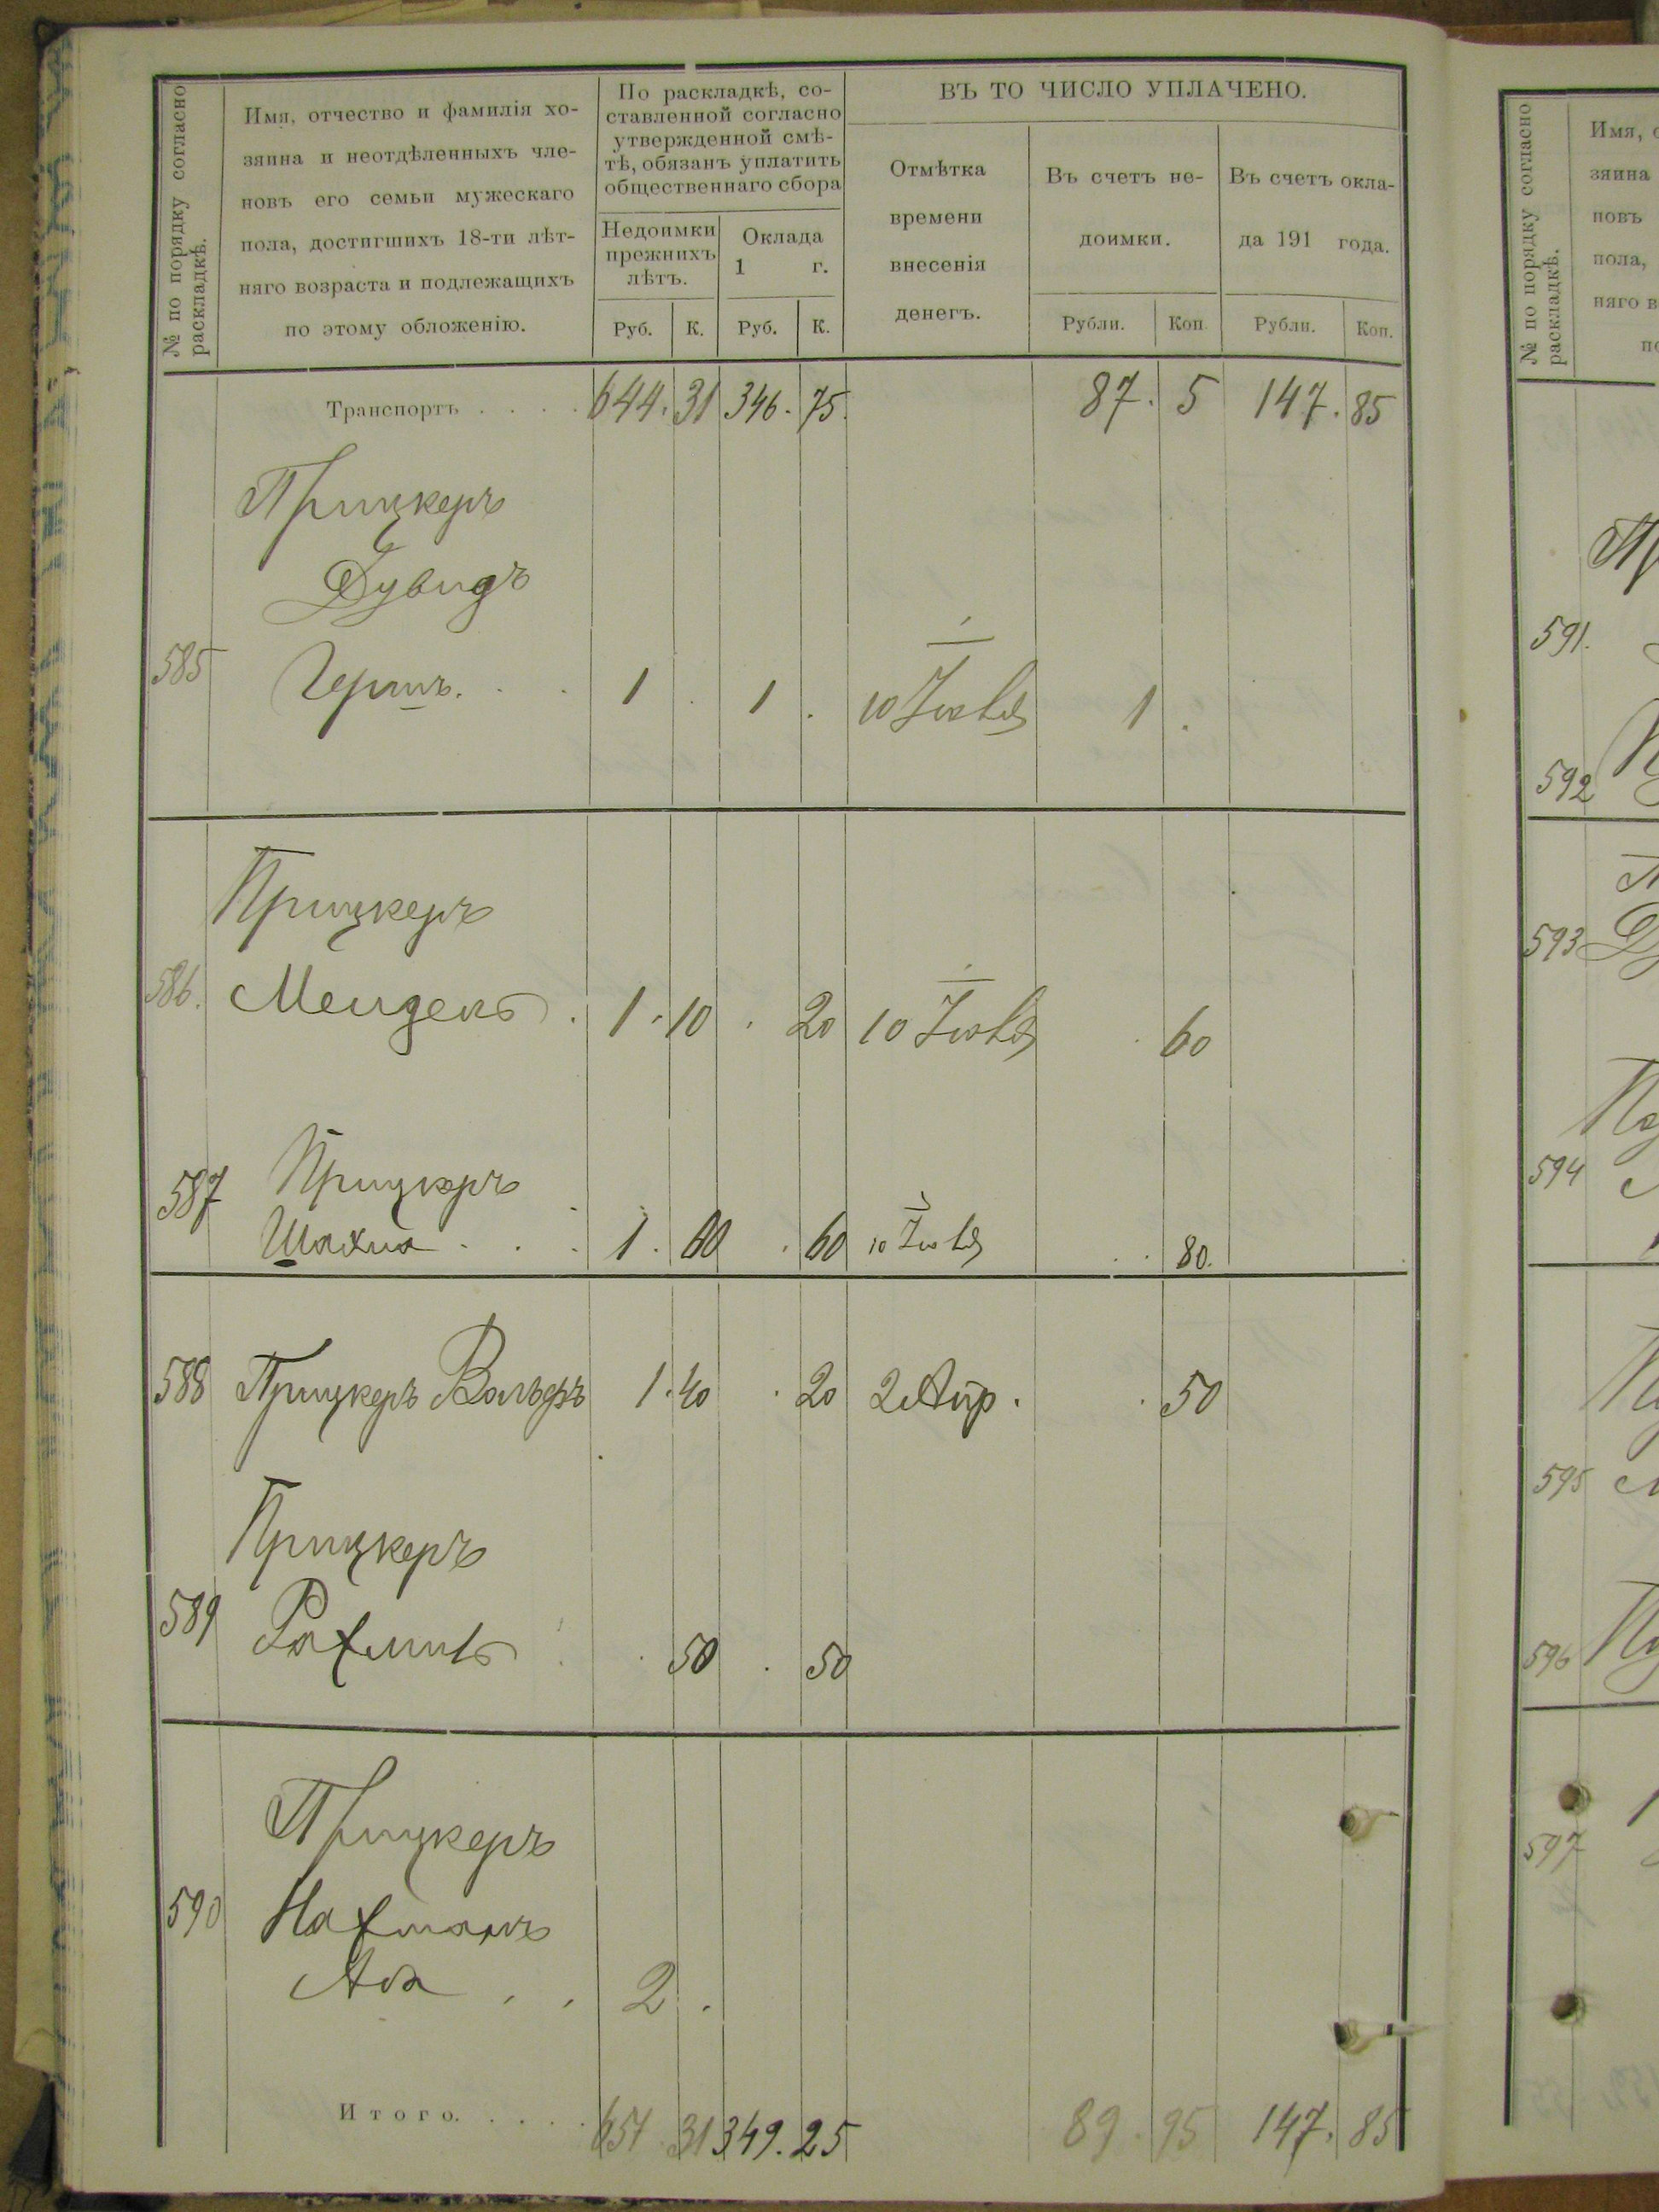 № по порядку согласно
раскладкѣ.
Имя, отчество и фамилія хо-
зяина и неотдѣленныхъ чле-
новъ его семьи мужескаго
пола, достигшихъ 18-ти лѣт-
няго возраста и подлежащихъ
по этому обложенію.
По раскладкѣ, со-
ставленной согласно
утвержденной смѣ-
тѣ, обязанъ уплатить
общественнаго сбора
Недоимки
прежнихъ
лѣтъ.
Оклада
1 г.
Руб. К. Руб. К.
ВЪ ТО ЧИСЛО УПЛАЧЕНО.
Отмѣтка
времени
внесенія
денегъ.
Въ счетъ не-
доимки.
Рубли. Коп
Въ счетъ окла-
да 191 года.
Рубли. Коп.
Транспортъ . . . . 644. 31 346. 75. 87. 5 147. 85
Прицкеръ
Дувидъ
585 Гершъ. . . 1 . 1 . 10 1 .
Прицкеръ
586. Мендель . 1 . 10 . 20 10 . 60
587 Прицкеръ
Шахна . . . 1 . 60 . 60 10 . . 80.
588 Прицкеръ Вольфъ 1. 40 . 20 2 Апр. . 50
Прицкеръ
589 Рахмиль . . 50 . 50
Прицкеръ
590 Нахманъ
Аба . . 2 .
Итого. . . . . 651 . 31 349. 25 89 . 95 147. 85
№ по порядку согласно
раскладкѣ.
Имя,
зяина
новъ
пола,
няго в
591.
592
593
594
595
596
597